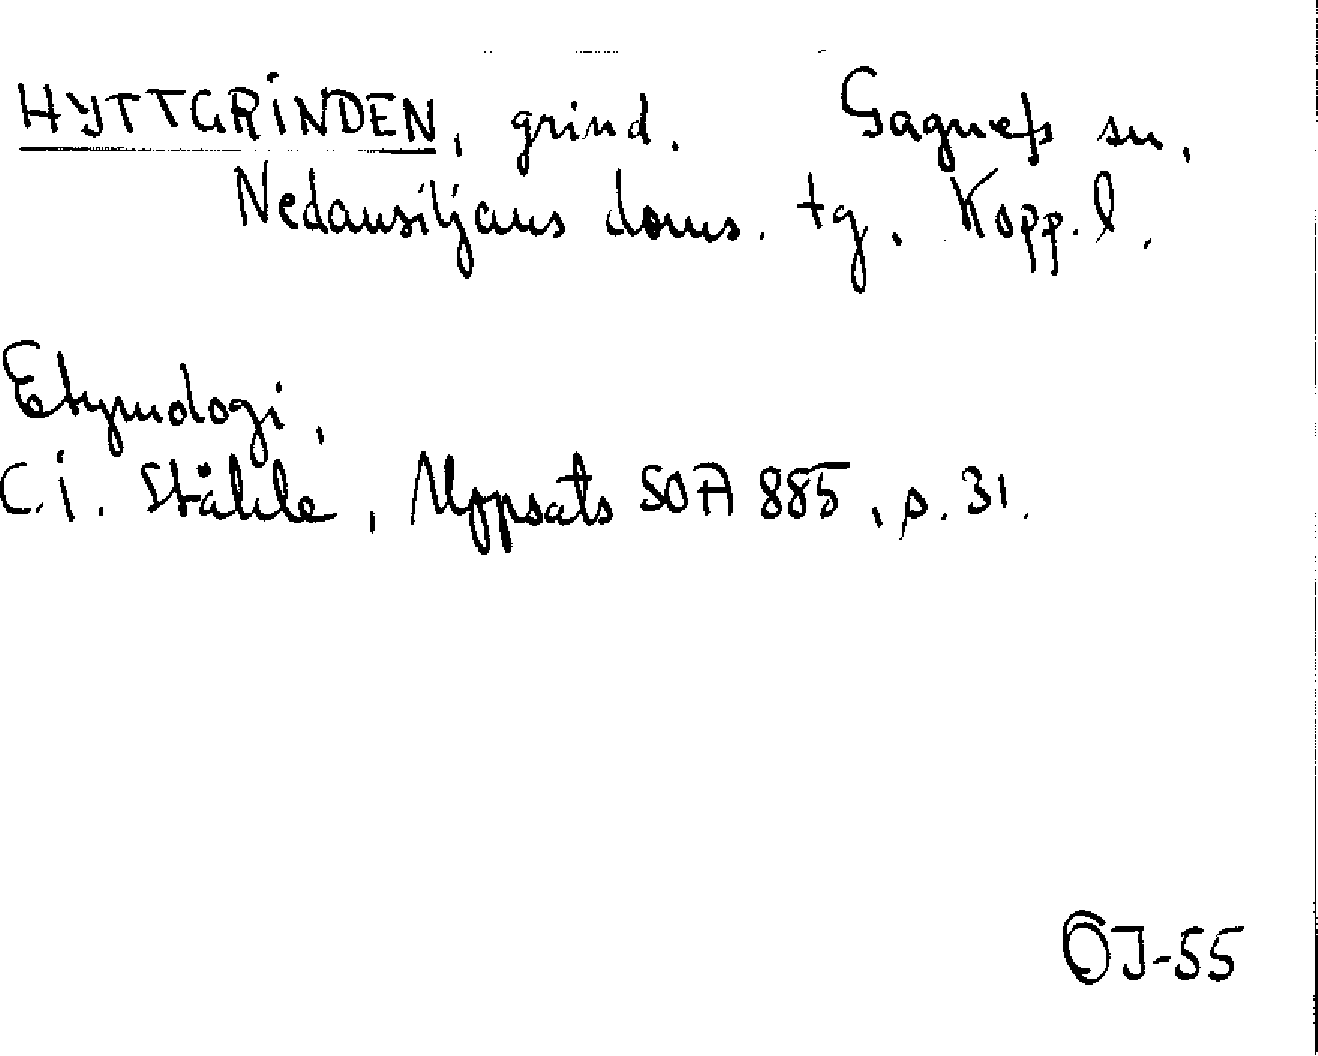 HYTTGRINDEN, grind. Gagnefs sn,
Nedansiljans doms. tg. Kopp. l.
Etymologi,
C.I. Ståhle, Uppsats SOA 885, s. 31.
OJ-55